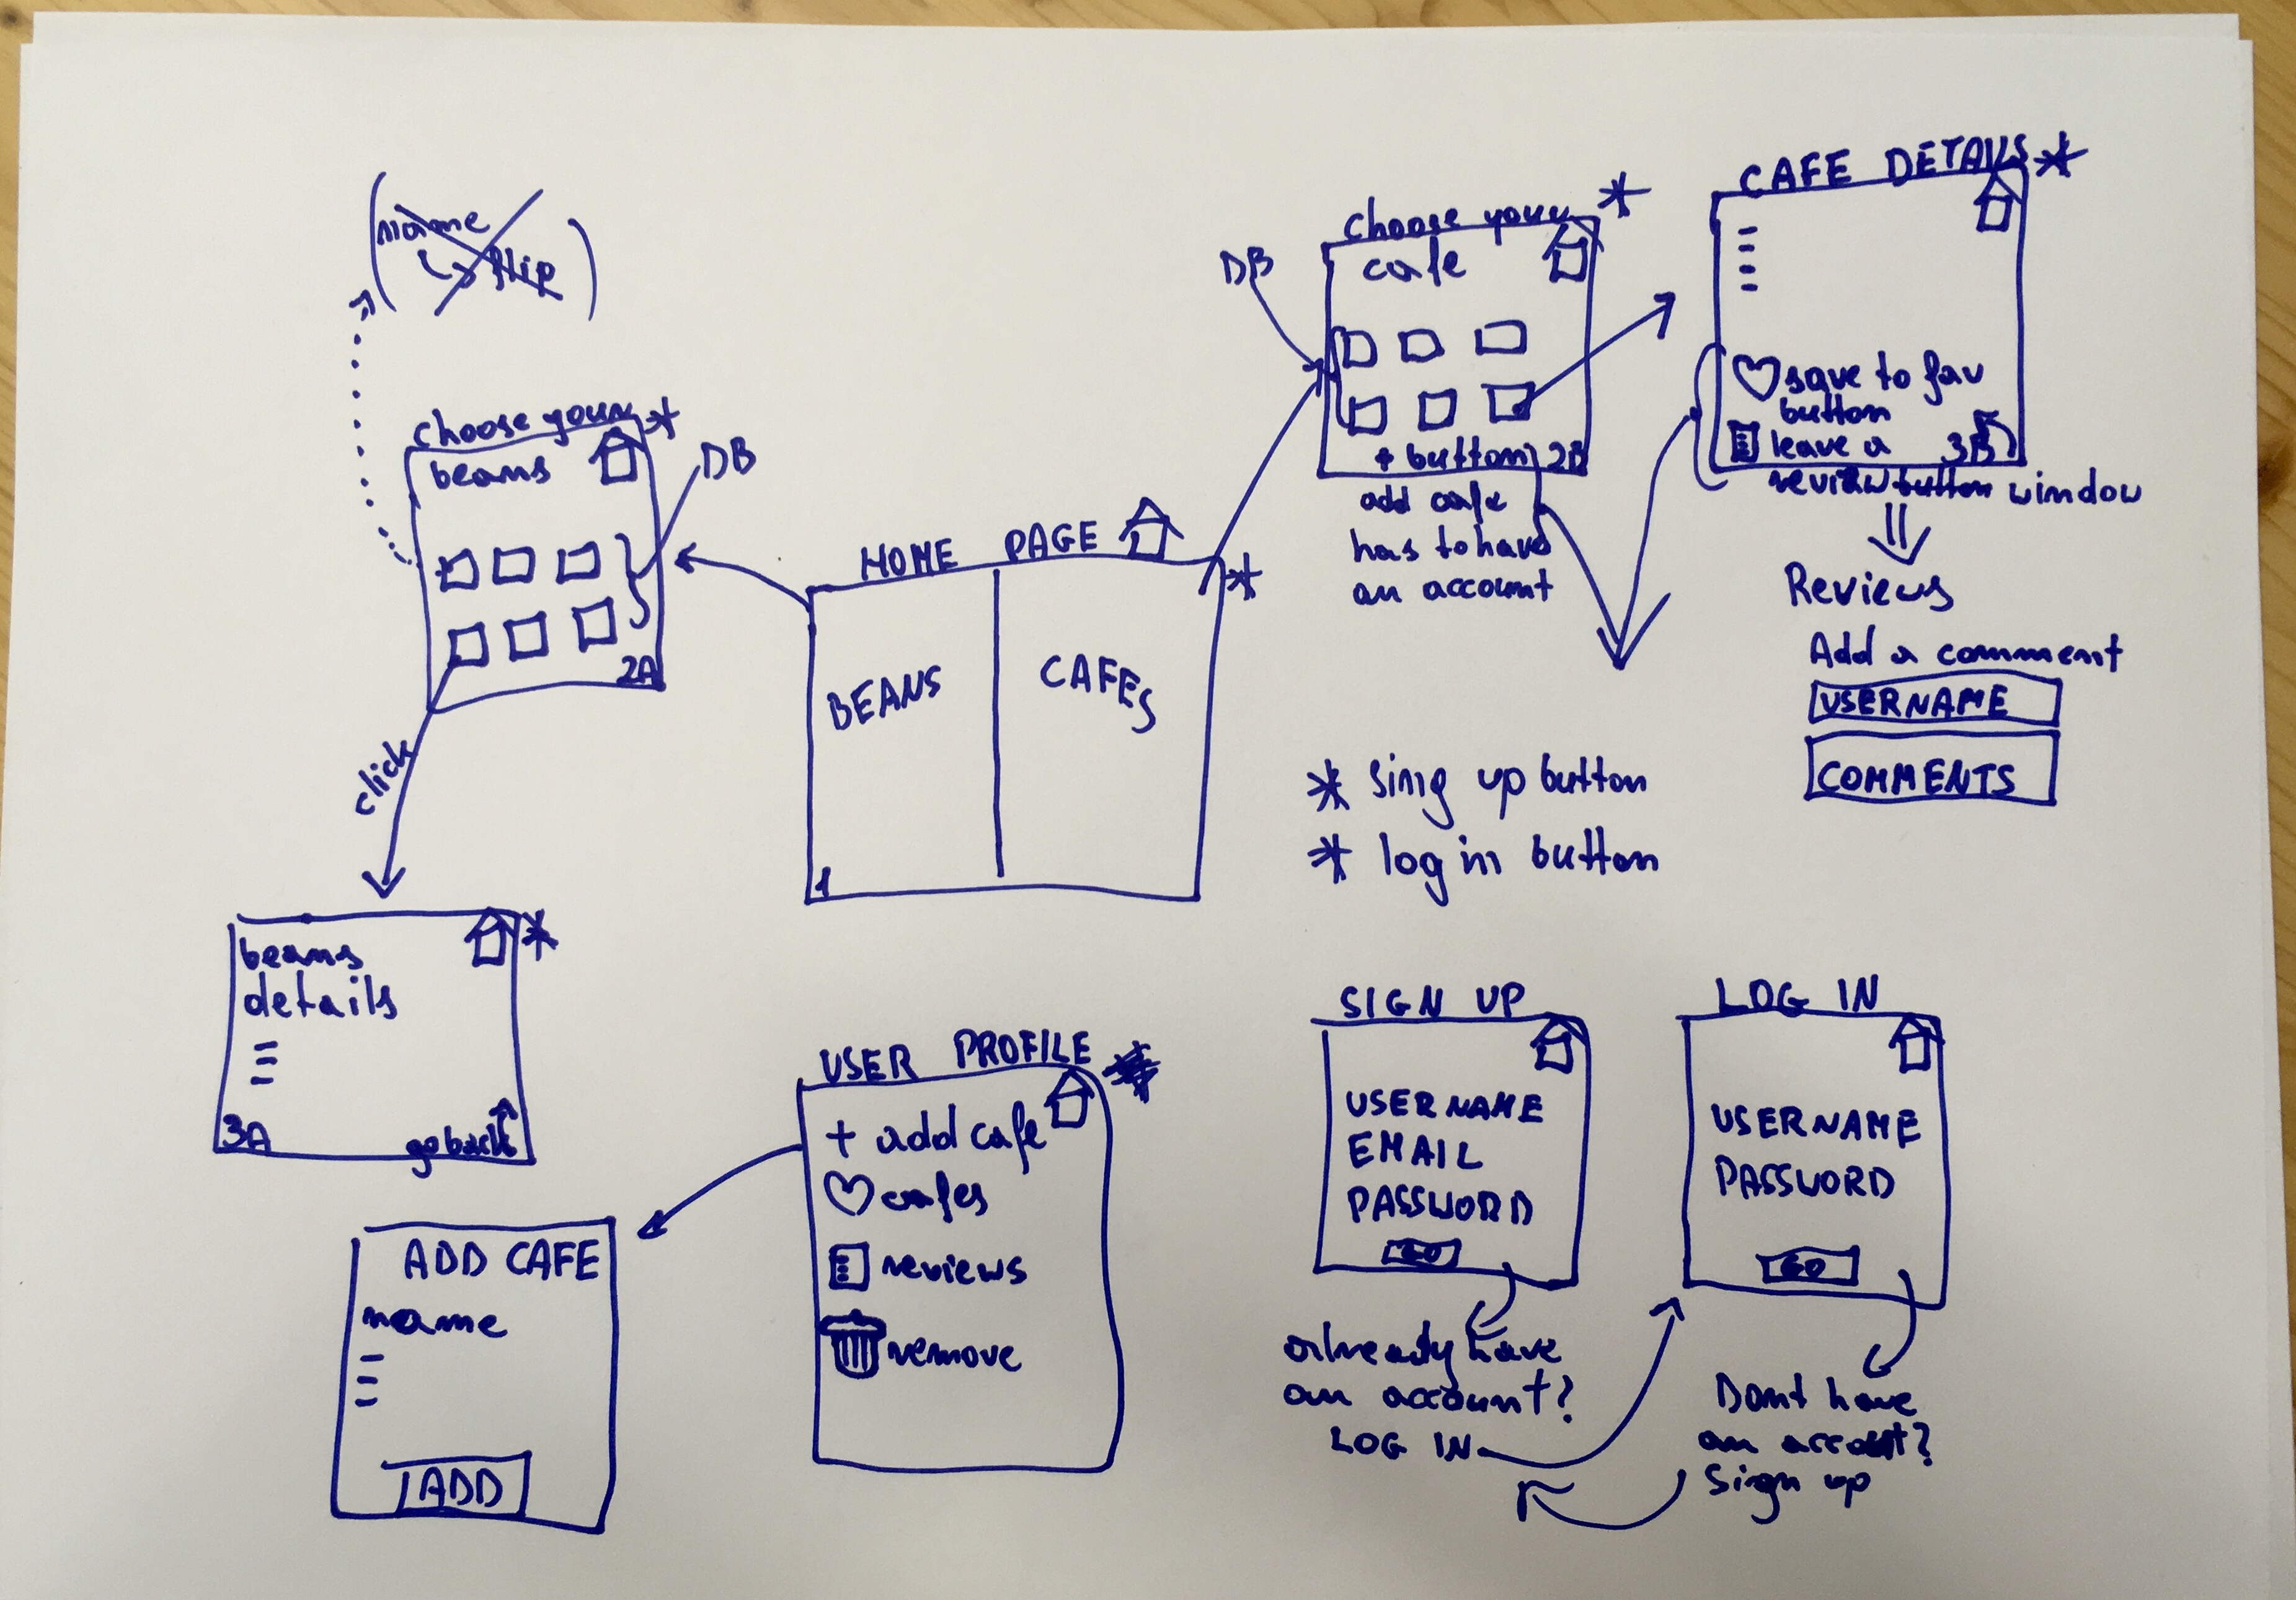 name
flip
choose your
beans
DB
2A
click
beans
details
3A
go back
HOME PAGE
BEANS
CAFES
1
DB
choose your
cafe
+ button
2B
add cafe
has to have
an account
CAFE DETAILS
save to fav
button
leave a
3B
review button window
Reviews
Add a comment
USERNAME
COMMENTS
* Sing up button
* log in button
USER PROFILE
+ add cafe
cafes
reviews
remove
ADD CAFE
name
ADD
SIGN UP
USERNAME
EMAIL
PASSWORD
GO
already have
an account?
LOG IN
LOG IN
USERNAME
PASSWORD
GO
Dont have
an account?
Sign up